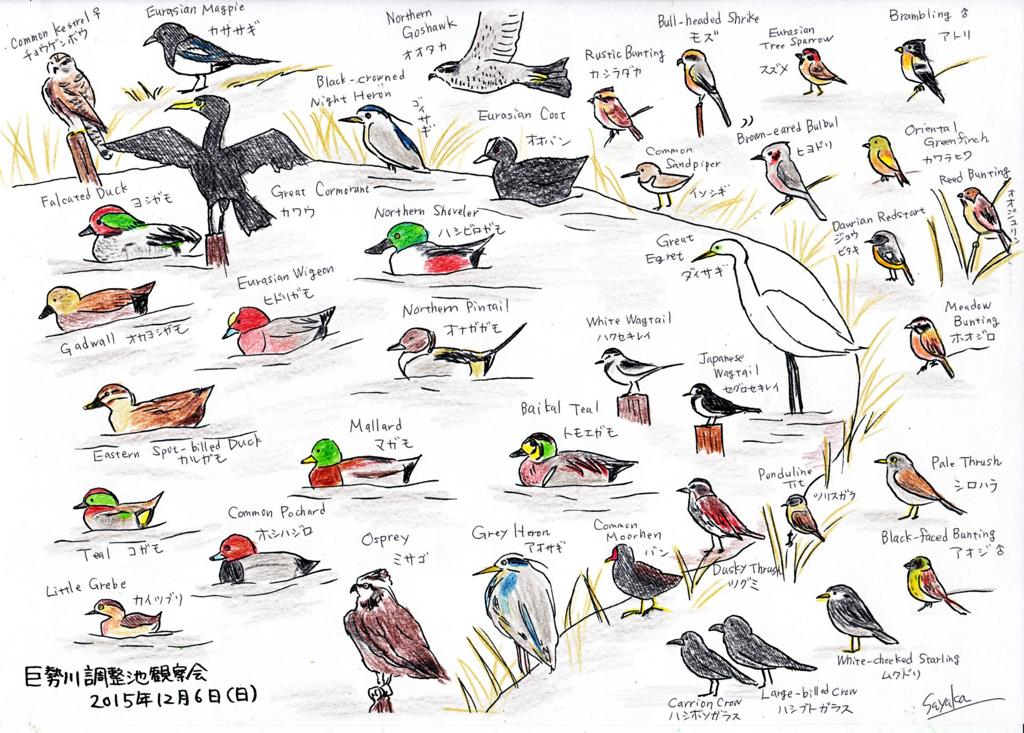 Common Kestrel ♀
チョウゲンボウ
Eurasian Magpie
カササギ
Northern
Goshawk
オオタカ
Bull-headed Shrike
モズ
Brambling ♂
アトリ
Rustic Bunting
カシラダカ
Eurasian
Tree Sparrow
スズメ
Black-crowned
Night Heron
ゴイサギ
Eurasian Coot
オオバン
Brown-eared Bulbul
ヒヨドリ
Oriental
Greenfinch
カワラヒワ
Common
Sandpiper
イソシギ
Reed Bunting
オオジュリン
Falcated Duck
ヨシガモ
Great Cormorant
カワウ
Northern Shoveler
ハシビロガモ
Great
Egret
ダイサギ
Daurian Redstart
ジョウ
ビタキ
Eurasian Wigeon
ヒドリガモ
Gadwall オカヨシガモ
Northern Pintail
オナガガモ
White Wagtail
ハクセキレイ
Japanese
Wagtail
セグロセキレイ
Meadow
Bunting
ホオジロ
Eastern Spot-billed Duck
カルガモ
Mallard
マガモ
Baikal Teal
トモエガモ
Penduline
Tit
ツリスガラ
Pale Thrush
シロハラ
Teal コガモ
Common Pochard
ホシハジロ
Osprey
ミサゴ
Grey Heron
アオサギ
Common
Moorhen
バン
Dusky Thrush
ツグミ
Black-faced Bunting
アオジ ♂
Little Grebe
カイツブリ
White-cheeked Starling
ムクドリ
Carrion Crow
ハシボソガラス
Large-billed Crow
ハシブトガラス
巨勢川調整池観察会
2015年12月6日(日)
Sayaka